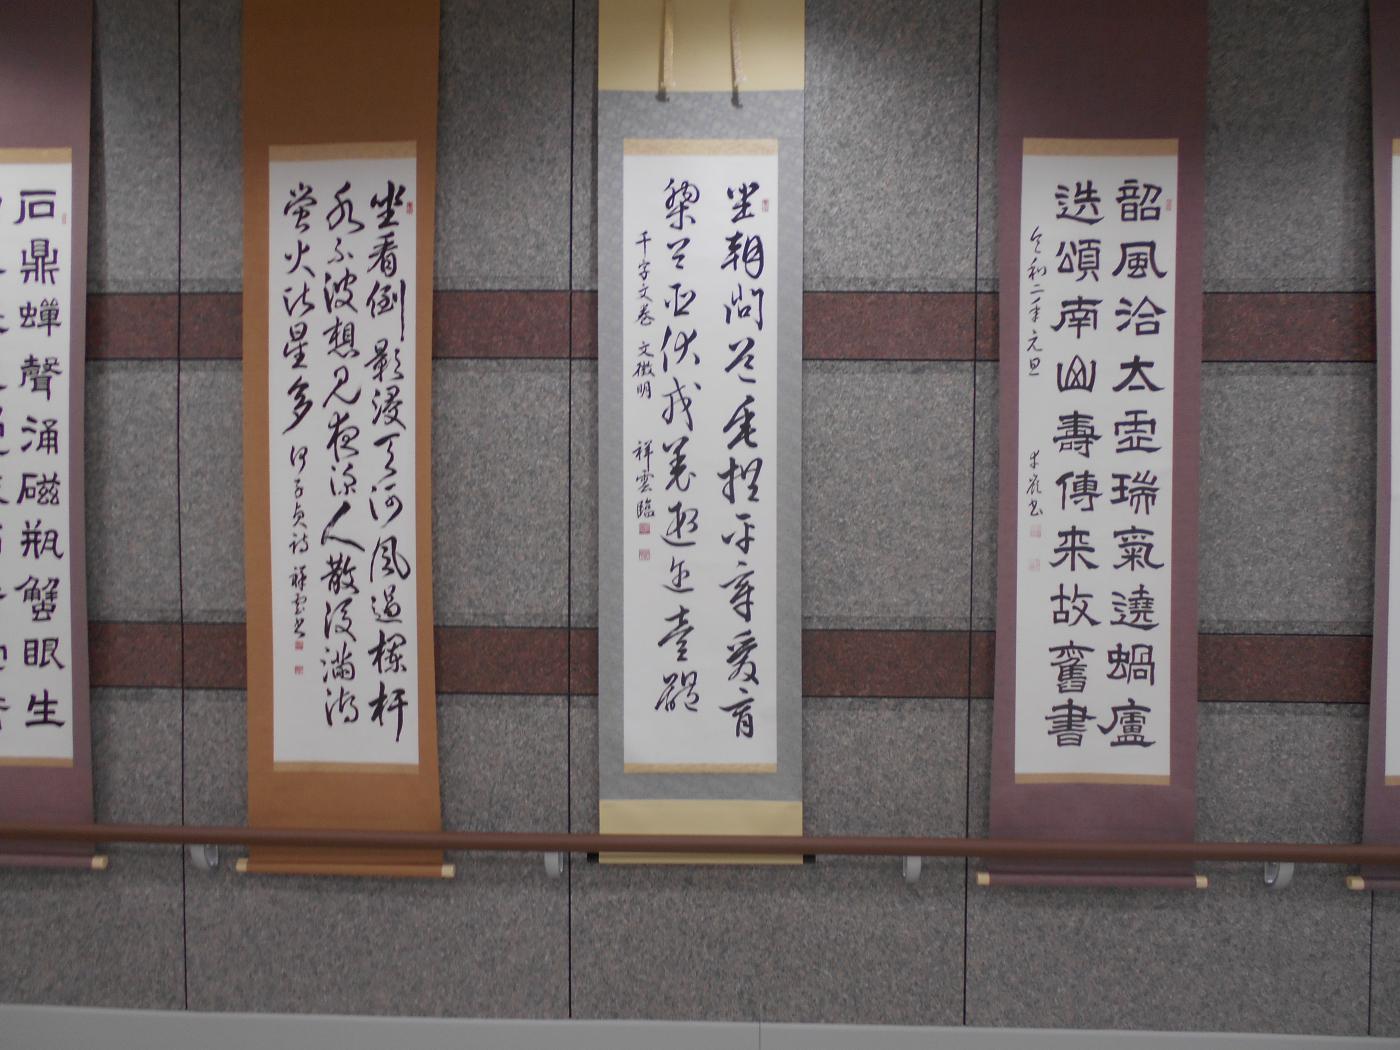 韶風洽太虚瑞氣遶蝸廬
迭頌南山壽傳来故舊書
令和二年元旦
坐朝問道垂拱平章愛育
黎首臣伏戎羌遐迩壹體
千字文巻 文徴明 祥雲臨
坐看倒影浸天河風過欄杆
水不波想見夜深人散後満湖
螢火比星多 何子貞詩 祥雲書
石鼎蟬聲涌磁瓶蟹眼生